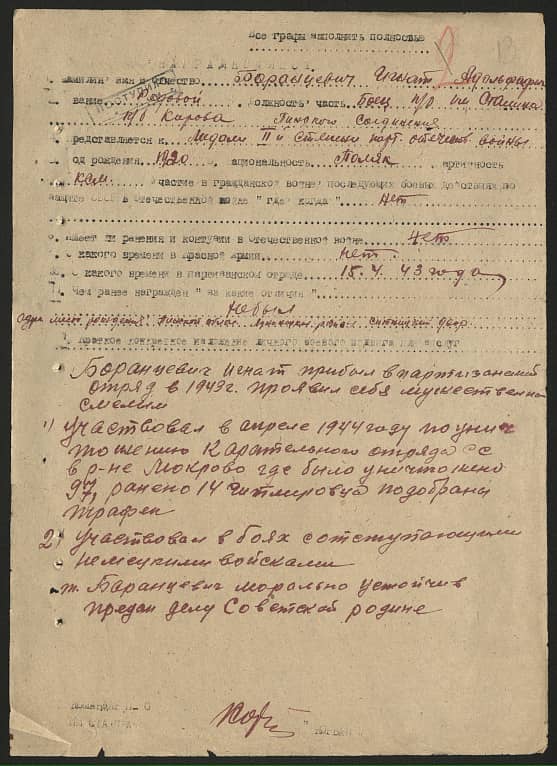 Все графы выполнить полностью
НАГРАДНОЙ ЛИСТ
Фамилия имя и отчество Баранцевич Игнат Адольфович
звание рядовой должность часть Боец п/о им Сталина
п/о Кирова Пинского Соединения
Представляется к Медали II й степени парт. отечеств войны
Год рождения 1920 национальность Поляк партийность
ВЛКСМ участие в гражданской войне последующих боевых действиях по
защите СССР в отечественной войне "где когда" Нет
Имеет ли ранения и контузии в отечественной войне Нет
С какого времени в красной армии Нет
С какого времени в партизанском отряде 15.4.43 года
Чем ранее награжден "за какие отличия"
Небыл
Краткое конкретное изложение личного боевого подвига или заслуг
Баранцевич Игнат прибыл в партизанский
отряд в 1943 г. проявил себя мужественно
смелым
1) участвовал в апреле 1944 году по унич
тожению Карательного отряда СС
в р-не Мокрово где было уничтожено
97, ранено 14 гитлеровца подобраны
трафеи
2) участвовал в боях с отступающими
немецкими войсками
т. Баранцевич морально устойчив
предан делу Советской родине
Командир п о